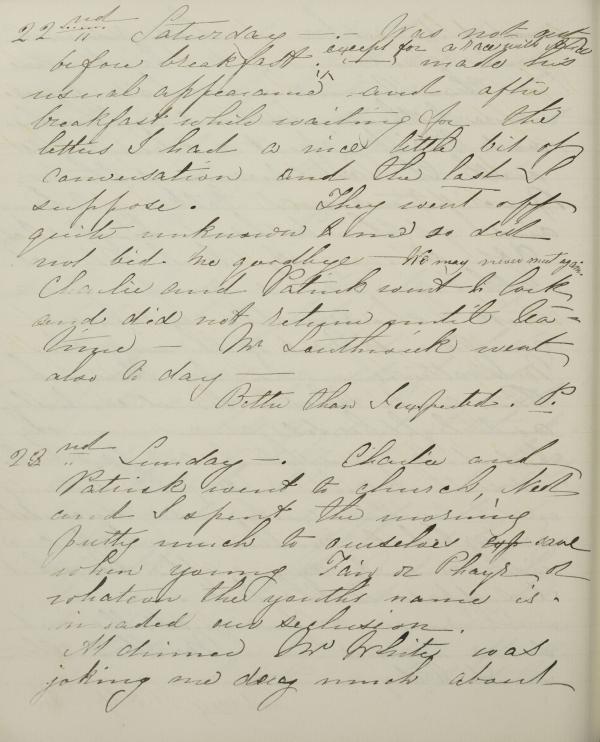 22nd Saturday — . Was not out
before breakfast. except for a race with
made his
usual appearance and after
breakfast while waiting for the
letters I had a nice little bit of
conversation and the last I
suppose. They went off
quite unknown to me so did
not bid me goodbye — We may never meet again.
Charlie and Patrick went to
and did not return until tea-
time — Mr Southwick went
also to day —
Better than I expected. P.
23nd Sunday — . Charlie and
Patrick went to church, Ned
and I spent the morning
pretty much to ourselves save
when young Fair or Phayr or
whatever the youths name is.
invaded our seclusion.
At dinner Mr White was
joking me very much about